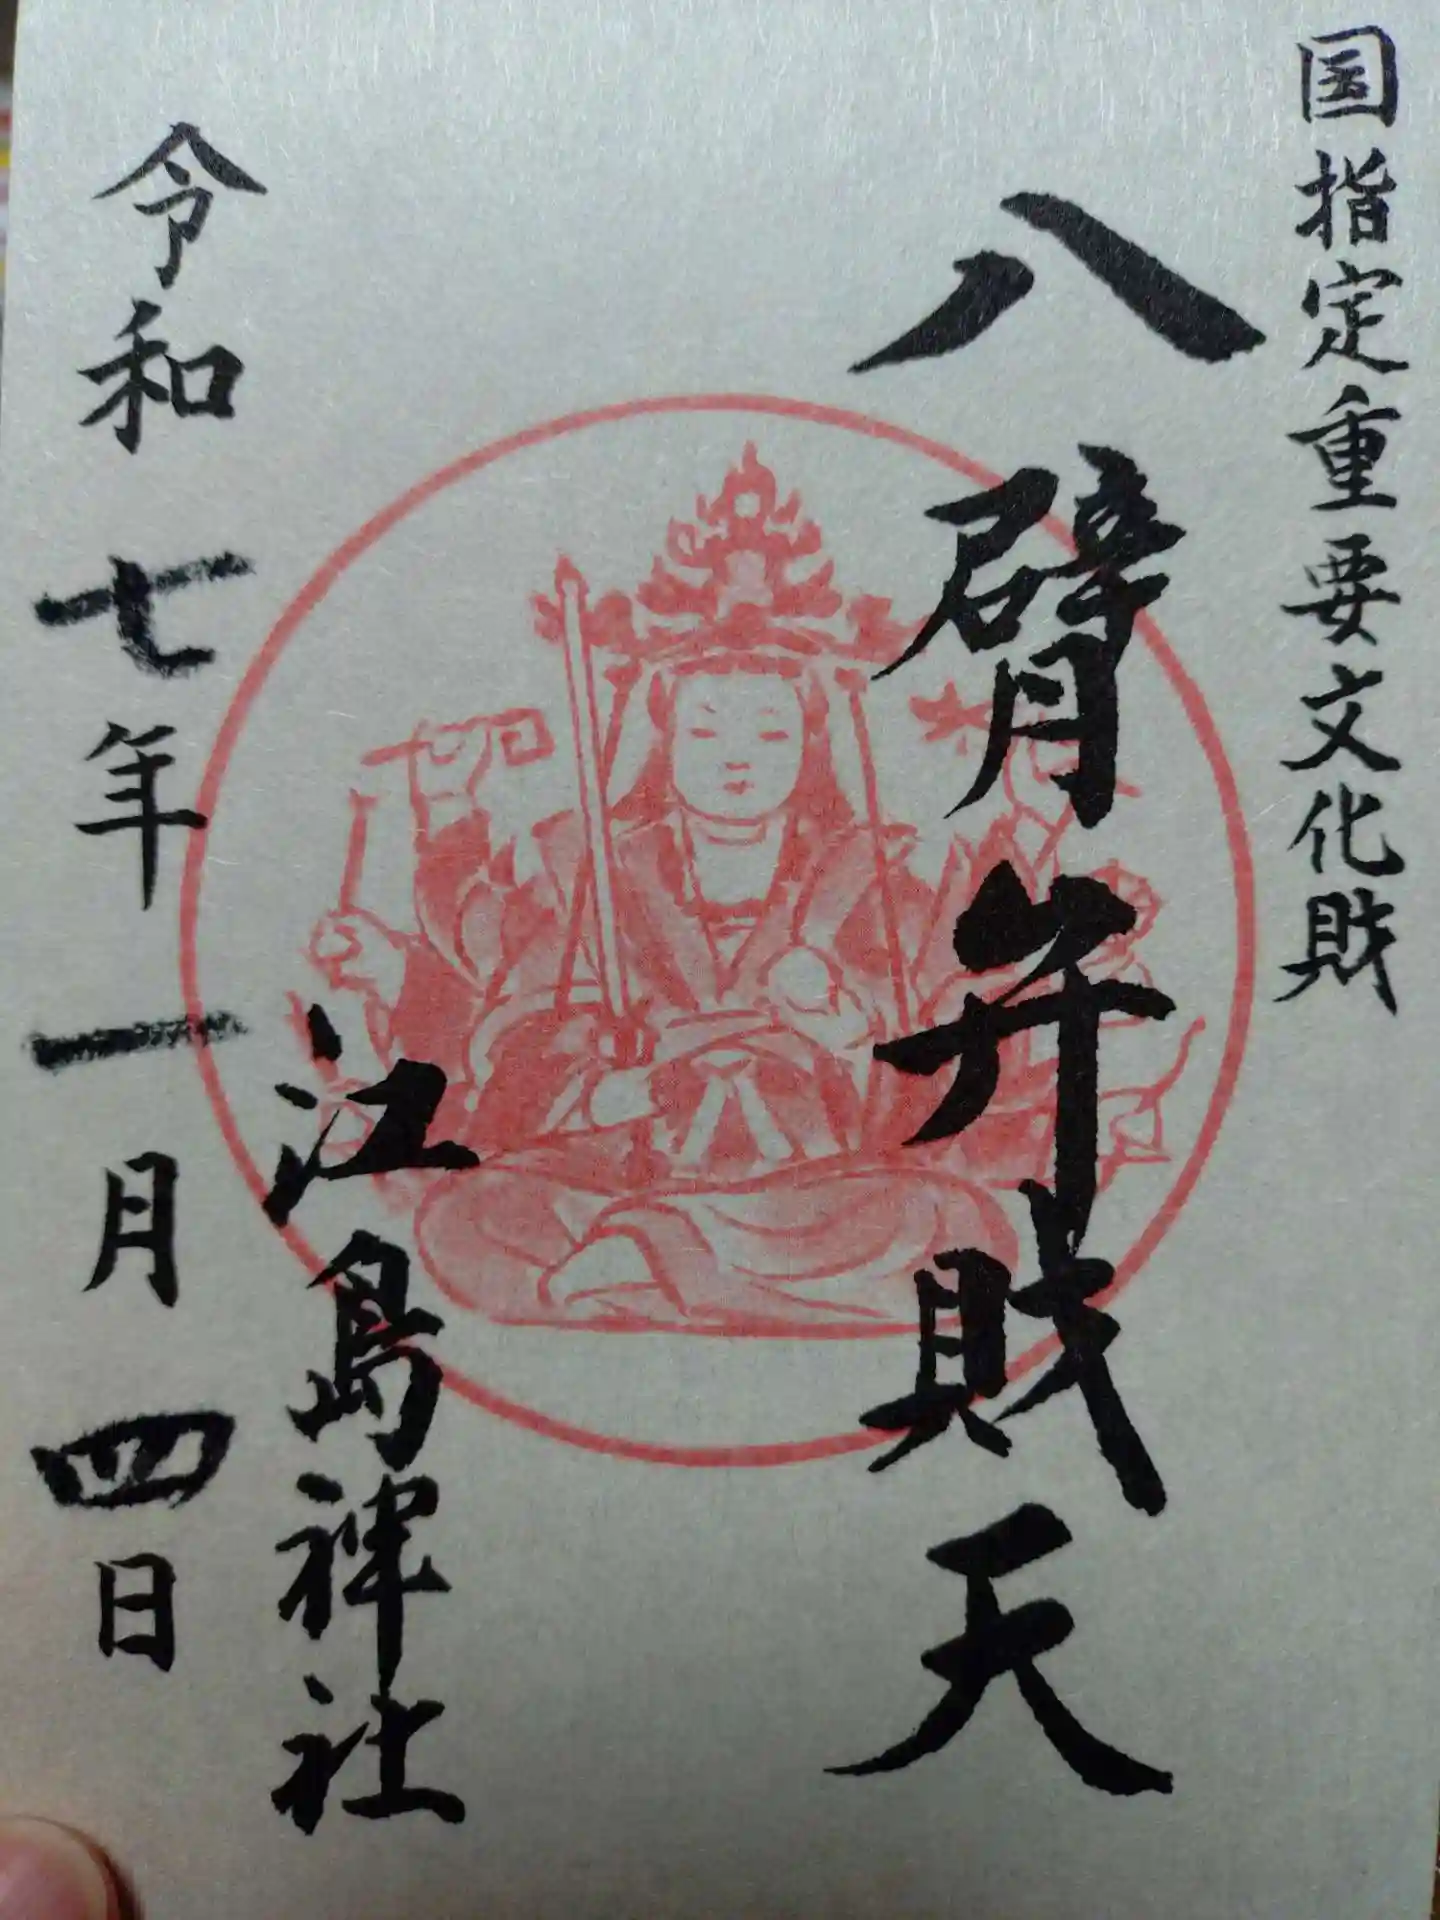 国指定重要文化財
八臂弁財天
江島神社
令和七年一月四日